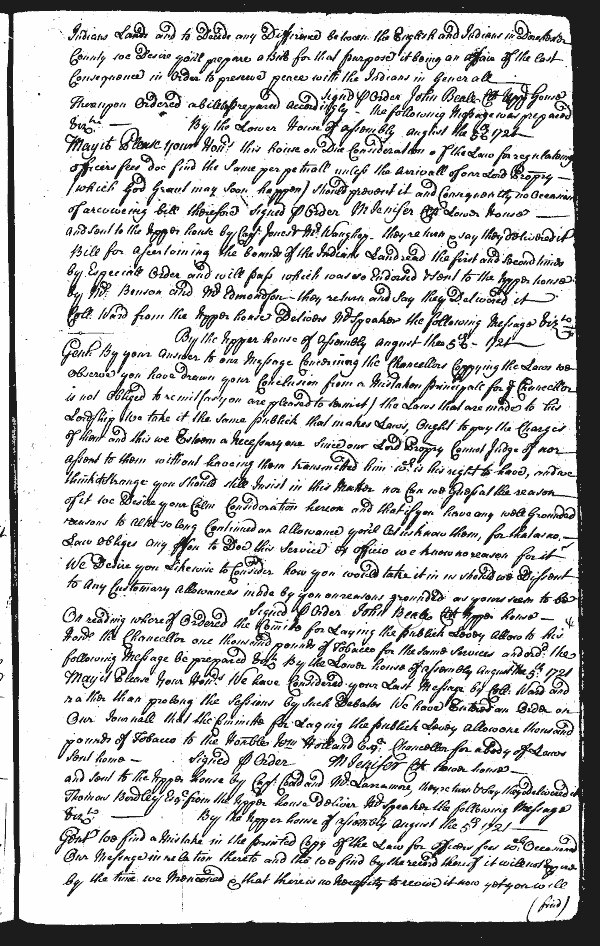 Indians Lands and to Decide any Difference between the English and Indians in Dorchester
County we Desire you'l prepare a Bill for that purpose it being an affair of the last
Consequence in Order to preserve peace with the Indians in Generall
Signd ⅌ Order John Beale Clk Uppr House
Thereupon Ordered a bill be prepared accordingly - the following Message was prepared
Vizt By the Lower House of Assembly August the 5th 1721
May it Please your Honrs this house on Due Consideration of the Law for regulating
officers fees doe find the same perpetuall unless the Arrivall of our Lord Propry
(which God Grant may Soon happen) should prevent it and Consequently no Occasion
of a reviveing bill therefore Signed ⅌ Order M Jenifer Clk Lower House
and Sent to the Upper house by Capt Jones & Mr they return & say they delivered it
Bill for ascertaining the bounds of the Indians Land read the first and second times
by Especiall Order and will pass which was so Endorsed & sent to the Upper house
by Mr Benson and Mr Edmondson - they return and Say they Delivered it
Coll Ward from the Upper house Delivers Mr Speaker the following Message Vizt
By the Upper house of Assembly August the 5th 1721
Gentn By your Answer to our Message Concerning the Chancellors Coppying the Laws we
observe you have drawn your Conclusion from a Mistaken principale for ye Chancellor
is not obliged to remit (as you are pleased to term it) the Laws that are made to his
Lordship we take it the same publick that makes Laws Ought to pay the Charges
of them and this we Esteem a necessary one Since our Lord Propry Cannot Judge of nor
assent to them without haveing them transmitted him wch is his right to have, and we
think it strange you should still Insist in this Matter nor Can we Guess at the reason
of it we Desire your Calm Consideration hereon and that if you have any well Grounded
reasons to so long Continued an Allowance you'l let us know them, for that as no
Law obliges any ⅌son to Doe this Service Ex officio we know no reason for it
We Desire you Likewise to Consider how you would take it in us should we Dissent
to Any Customary Allowances made by you on reasons grounded as yours seem to be
Signed ⅌ Order John Beale Clk Upper house
On reading whereof Ordered the Comittee for Laying the publick Levey Allow to his
Honr the Chancellor one thousand pounds of Tobacco for the same Services and ordrd the
following Message be prepared Vizt By the Lower house of Assembly August the 5th 1721
May it Please Your Honrs We have Considered your Last Message by Coll Ward and
rather than prolong the Sessions by such Debates We have Entered an Order on
Our Journall that the Comittee for Laying the publick Levey allow one thousand
pounds of Tobacco to the Honble Wm Holland Esqr Chancellor for a body of Laws
Sent home - Signed ⅌ Order M Jenifer Clk Lower house
and Sent to the Upper house by Capt and Mr Larramore, they return & say they delivered it
Thomas Bordley Esqr from the Upper house deliver Mr Speaker the following Message
Vizt By the Upper house of Assembly August the 5th 1721
Gentn We find a Mistake in the printed Copy of the Law for officers fees wch Occasioned
Our Message in relation thereto and tho we find by the record thereof it will not Expire
by the time we Mentioned & that there is no Necessity to revive it now yet you will
(find)